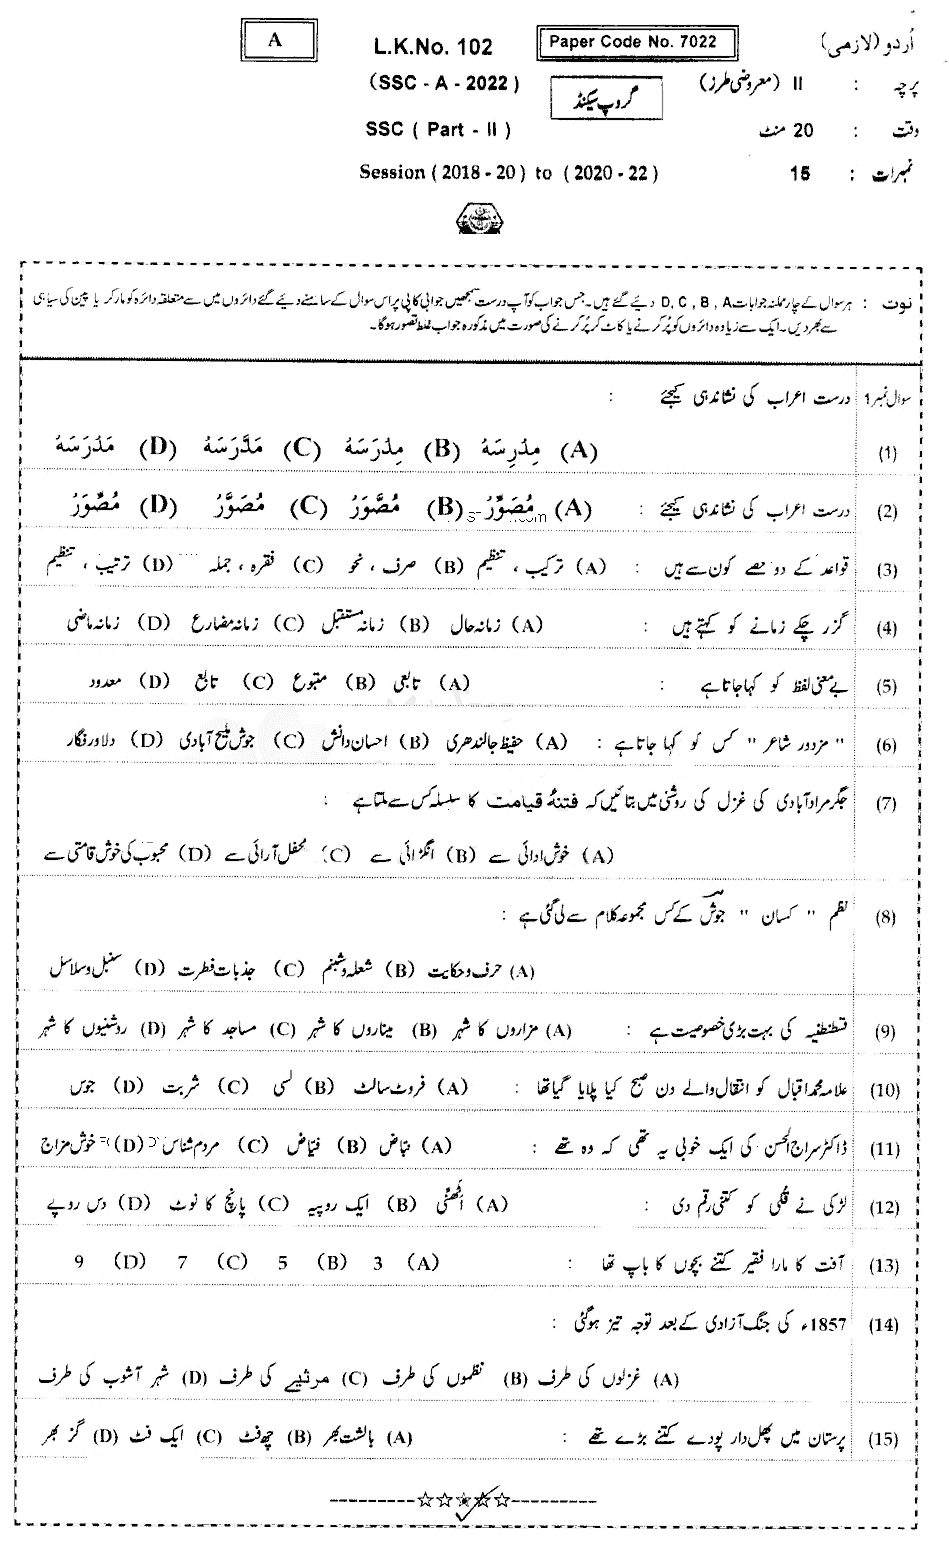 اُردو (لازمی) Paper Code No. 7022 L.K.No. 102 A
پرچہ : II (معروضی طرز) گروپ سیکنڈ (SSC - A - 2022)
وقت : 20 منٹ SSC ( Part - II )
نمبرات : 15 Session ( 2018 - 20 ) to ( 2020 - 22 )
نوٹ : ہر سوال کے چار ممکنہ جوابات D, C, B, A دیئے گئے ہیں۔ جس جواب کو آپ درست سمجھیں جوابی کاپی پر اس سوال کے سامنے دیئے گئے دائروں میں سے متعلقہ دائرہ کو مارکر یا پین کی سیاہی
سے بھر دیں۔ ایک سے زیادہ دائروں کو پُر کرنے یا کاٹ کر پُر کرنے کی صورت میں مذکورہ جواب غلط تصور ہوگا۔
سوال نمبر 1 درست اعراب کی نشاندہی کیجئے :
(1) (A) مِدْرِسَہْ (B) مِدْرَسَہْ (C) مَدَّرَسَہْ (D) مَدْرَسَہْ
(2) درست اعراب کی نشاندہی کیجئے : (A) مُصَوِّرْ (B) مُصَّوَرْ (C) مُصَوَّرْ (D) مُصِّوَرْ
(3) قواعد کے دو حصے کون سے ہیں : (A) ترکیب ، تنظیم (B) صرف ، نحو (C) فقرہ ، جملہ (D) ترتیب ، تنظیم
(4) گزر چکے زمانے کو کہتے ہیں : (A) زمانہ حال (B) زمانہ مستقبل (C) زمانہ مضارع (D) زمانہ ماضی
(5) بے معنی لفظ کو کہا جاتا ہے : (A) تابعی (B) متبوع (C) تابع (D) معدود
(6) " مزدور شاعر " کس کو کہا جاتا ہے : (A) حفیظ جالندھری (B) احسان دانش (C) جوش ملیح آبادی (D) دلاور فگار
(7) جگر مراد آبادی کی غزل کی روشنی میں بتائیں کہ فتنۂ قیامت کا سلسلہ کس سے ملتا ہے :
(A) خوش ادائی سے (B) انگڑائی سے (C) محفل آرائی سے (D) محبوب کی خوش قامتی سے
(8) نظم " کسان " جوش کے کس مجموعہ کلام سے لی گئی ہے :
(A) حرف و حکایت (B) شعلہ و شبنم (C) جذبات فطرت (D) سنبل و سلاسل
(9) قسطنطنیہ کی بہت بڑی خصوصیت ہے : (A) مزاروں کا شہر (B) میناروں کا شہر (C) مساجد کا شہر (D) روشنیوں کا شہر
(10) علامہ محمد اقبال کو انتقال والے دن صبح کیا پلایا گیا تھا : (A) فروٹ سالٹ (B) لسی (C) شربت (D) جوس
(11) ڈاکٹر سراج الحسن کی ایک خوبی یہ تھی کہ وہ تھے : (A) نباض (B) فیّاض (C) مردم شناس (D) خوش مزاج
(12) لڑکی نے قُلی کو کتنی رقم دی : (A) اَٹھنّی (B) ایک روپیہ (C) پانچ کا نوٹ (D) دس روپے
(13) آفت کا مارا فقیر کتنے بچوں کا باپ تھا : (A) 3 (B) 5 (C) 7 (D) 9
(14) 1857ء کی جنگ آزادی کے بعد توجہ تیز ہوگئی :
(A) غزلوں کی طرف (B) نظموں کی طرف (C) مرثیے کی طرف (D) شہر آشوب کی طرف
(15) پرستان میں پھل دار پودے کتنے بڑے تھے : (A) بالشت بھر (B) چھ فٹ (C) ایک فٹ (D) گز بھر